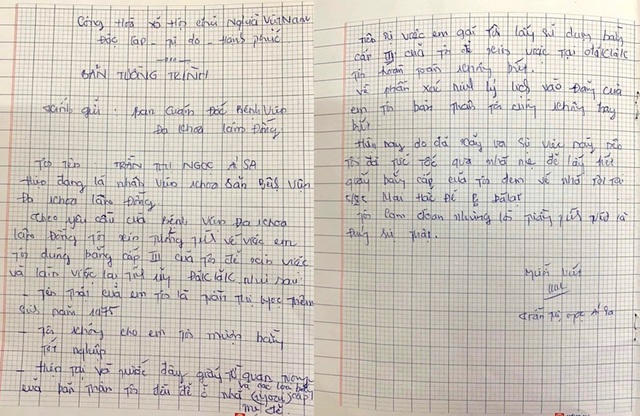 Cộng Hoà xã hội chủ Nghĩa Việt Nam
Độc lập - Tự do - Hạnh phúc
BẢN TƯỜNG TRÌNH
Kính gửi: Ban Giám Đốc Bệnh Viện
Đa khoa Lâm Đồng
Tôi Tên TRẦN THỊ NGỌC Á SA
Hiện đang là nhân viên khoa sản Bệnh viện
Đa khoa Lâm Đồng
Theo yêu cầu của Bệnh Viện Đa khoa
Lâm Đồng Tôi xin tường trình về việc em
Tôi dùng bằng cấp III của Tôi để xin việc
và làm việc tại Tỉnh ủy ĐăkLăk như sau
- Tên Thật của em Tôi là Trần Thị Ngọc Thêm
Sinh năm 1975
- Tôi không cho em Tôi mượn bằng
Tốt nghiệp
- Hiện tại và trước đây giấy tờ quan trọng
và các loại bằng
của bản thân Tôi đều để ở nhà
mẹ đẻ
Trên sự việc em gái Tôi lấy sử dụng bằng
cấp III của Tôi để xin việc tại ĐăkLăk
Tôi hoàn toàn không biết.
Về phần xác minh lý lịch vào Đảng của
em Tôi bản Thân Tôi cũng không hay
biết
Hôm nay do đã xảy ra sự việc này nên
Tôi đã tức tốc qua nhà mẹ để lấy hết
giấy bằng cấp của Tôi đem về nhà Tôi Tại
Mai Hắc Đế Đà lạt
Tôi cam đoan những lời tường trình trên là
Đúng sự thật.
Người viết
Trần Thị Ngọc Á Sa